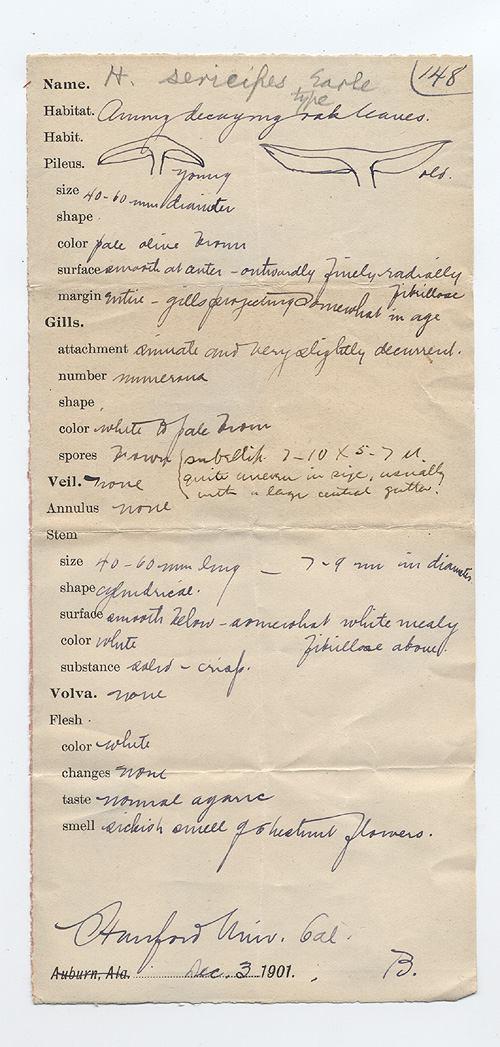 Name. H. sericipes Earle (148
type
Habitat. Among decaying oak leaves.
Habit.
Pileus. young old.
size 40-60 mm diameter
shape
color pale olive brown
surface smooth at center - outwardly finely radially
fibrillose
margin entire - gills projecting somewhat in age
Gills.
attachment sinuate and very slightly decurrent.
number numerous
shape
color white to pale brown
spores brown (subellip. 7-10 X 5-7 µ.
quite uneven in size, usually
with a large central gutter.
Veil. none
Annulus none
Stem
size 40-60 mm long - 7-9 mm in diameter
shape cylindrical.
surface smooth below - somewhat white mealy
fibrillose above.
color white
substance solid - crisp.
Volva. none
Flesh
color white
changes none
taste normal agaric
smell sickish smell of chestnut flowers.
Stanford Univ. Cal.
Auburn, Ala. Dec. 3 1901. B.